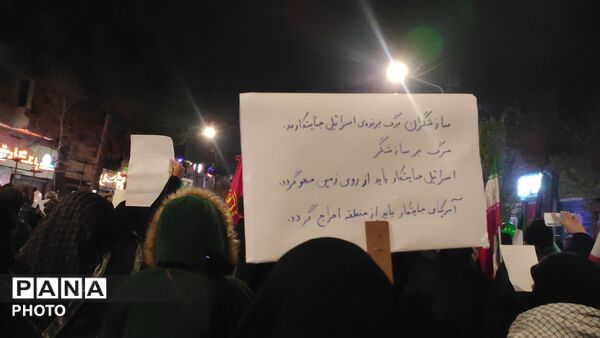 سازشگران برگ برنده‌ی اسرائیل جنایتکارند.
مرگ بر سازشگر
اسرائیل جنایتکار باید از روی زمین محو گردد.
آمریکای جنایتکار باید از منطقه اخراج گردد.
PANA
PHOTO